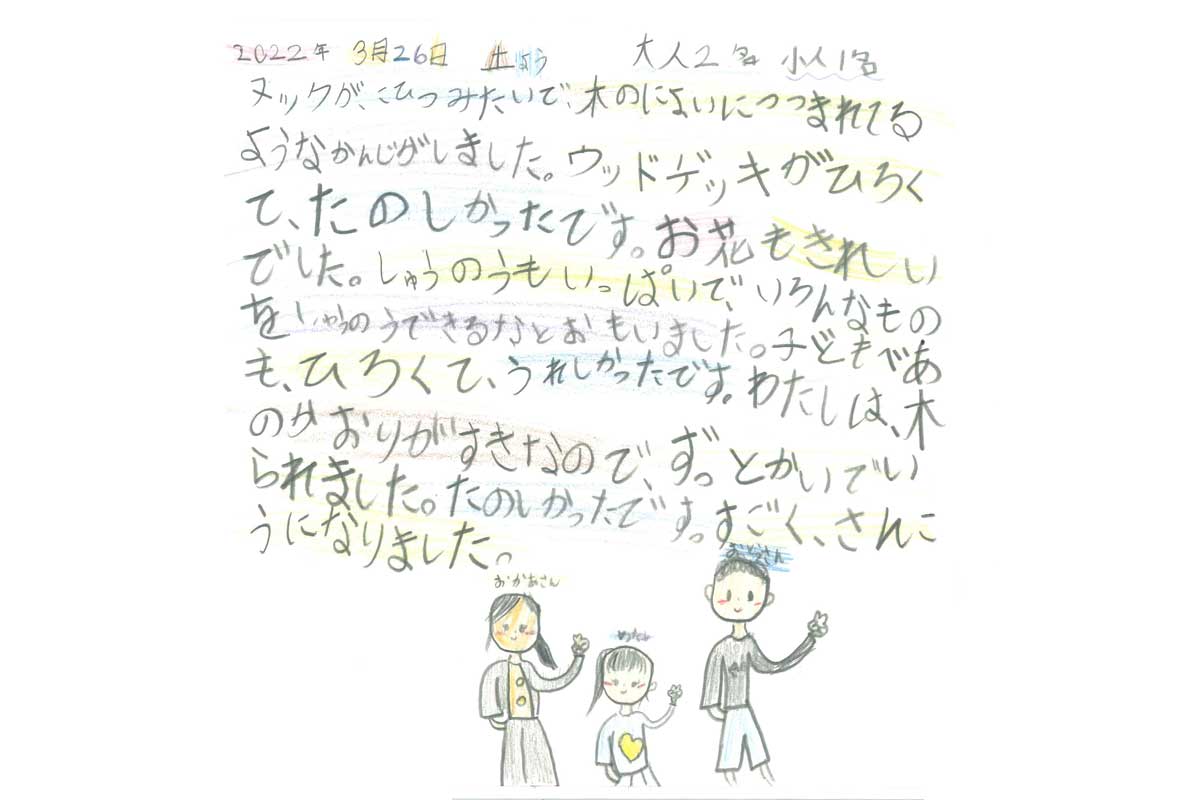 2022年 3月26日 土よう 大人2名 小人1名
ヌックが、こひつみたいで、木のにおいにつつまれてる
ようなかんじがしました。ウッドデッキがひろく
て、たのしかったです。お花もきれい
でした。しゅうのうもいっぱいで、いろんなもの
をしゅうのうできるなとおもいました。子どもべあ
も、ひろくて、うれしかったです。わたしは、木
のかおりがすきなので、ずっとかいでい
られました。たのしかったです。すごく、さんこ
うになりました。
おかあさん
わたし
おとうさん